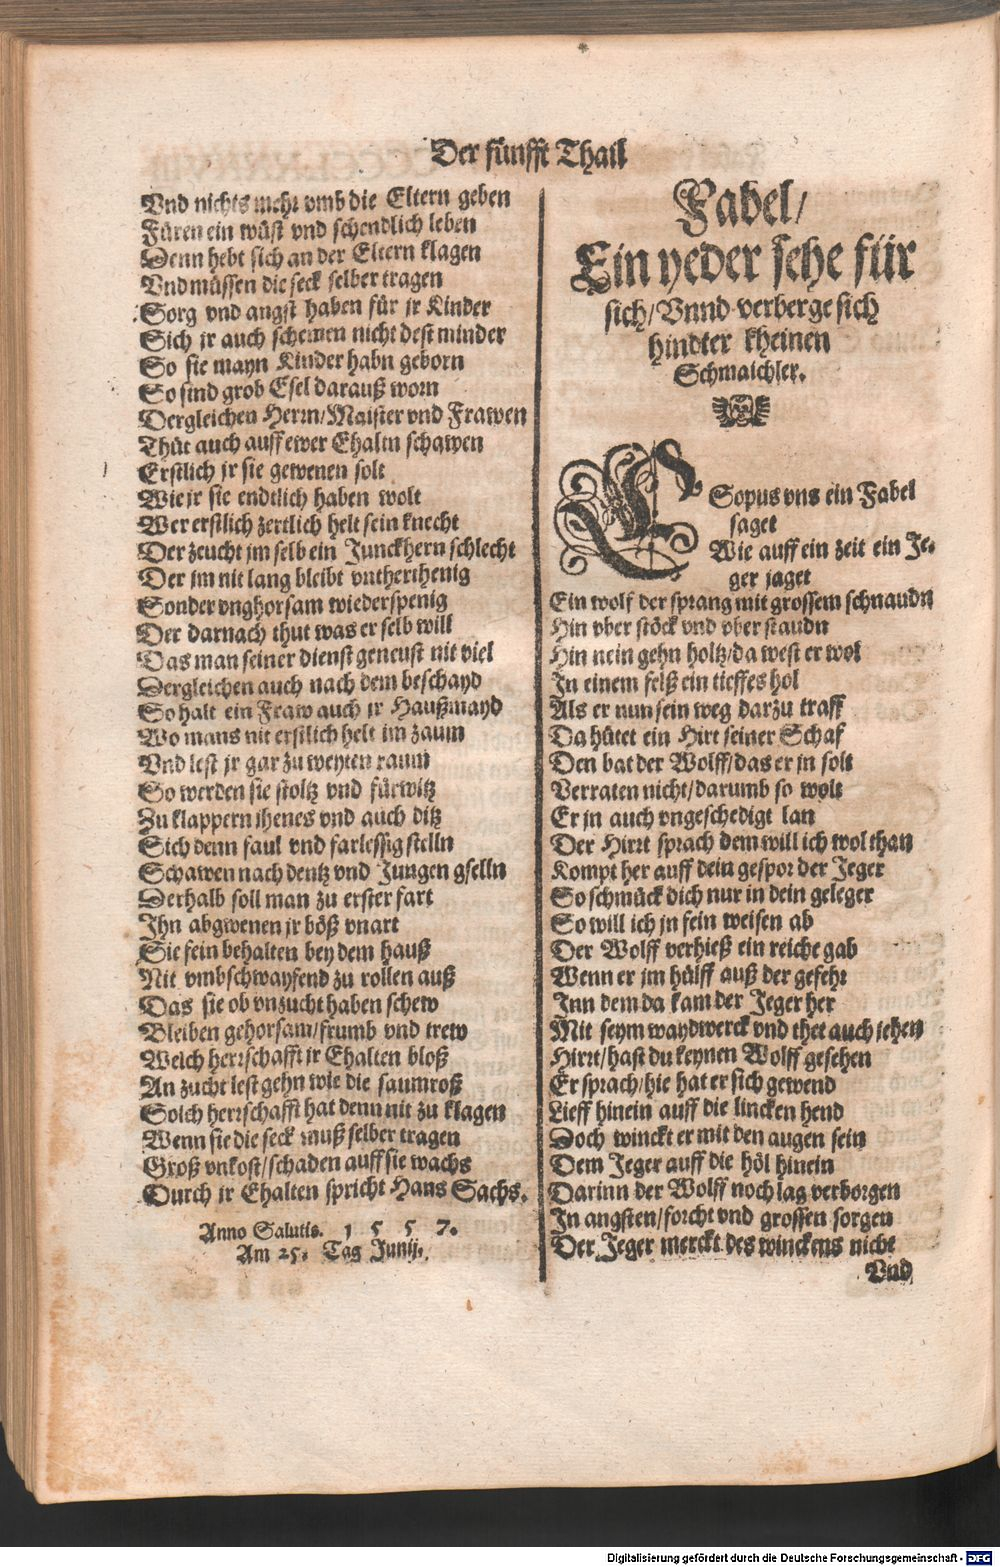 Der fünfft Thail
Vnd nichts mehr vmb die Eltern geben
Füren ein wüst vnd schendlich leben
Denn hebt sich an der Eltern klagen
Vnd müssen die seck selber tragen
Sorg vnd angst haben für jr Kinder
Sich jr auch schemen nicht dest minder
So sie mayn Kinder habn geborn
So sind grob Esel darauß worn
Dergleichen Herrn/Maister vnd Frawen
Thüt auch auff ewer Ehaltn schawen
Erstlich jr sie gewenen solt
Wie jr sie endtlich haben wolt
Wer erstlich zertlich helt sein knecht
Der zeucht jm selb ein Junckhern schlecht
Der jm nit lang bleibt vnttherthenig
Sonder vnghorsam wiederspenig
Der darnach thut was er selb will
Das man seiner dienst geneust nit viel
Dergleichen auch nach dem beschayd
So halt ein Fraw auch jr Haußmayd
Wo mans nit erstlich helt im zaum
Vnd lest jr gar zu weyten raum
So werden sie stoltz vnd fürwitz
Zu klappern jhenes vnd auch ditz
Sich denn faul vnd farlessig stelln
Schawen nach dentz vnd Jungen gselln
Derhalb soll man zu erster fart
Ihn abgwenen jr böß vnart
Sie fein behalten bey dem hauß
Nit vmbschwayfend zu rollen auß
Das sie ob vnzucht haben schew
Bleiben gehorsam/frumb vnd trew
Welch herrschafft jr Ehalten bloß
An zucht lest gehn wie die saumroß
Solch herrschafft hat denn nit zu klagen
Wenn sie die seck muß selber tragen
Groß vnkost/schaden auff sie wachs
Durch jr Ehalten spricht Hans Sachs.
Anno Salutis. 1 5 5 7.
Am 25. Tag Junij.
Fabel/
Ein yeder sehe für
sich/Vnnd verberge sich
hindter kheinen
Schmaichler.
ESopus vns ein Fabel
saget
Wie auff ein zeit ein Je-
ger jaget
Ein wolf der sprang mit grossem schnaudn
Hin vber stöck vnd vber staudn
Hin nein gehn holtz/da west er wol
In einem felß ein tieffes hol
Als er nun sein weg darzu traff
Da hütet ein Hirt seiner Schaf
Den bat der Wolff/das er jn solt
Verraten nicht/darumb so wolt
Er jn auch vngeschedigt lan
Der Hirrt sprach dem will ich wol than
Kompt her auff dein gespor der Jeger
So schmück dich nur in dein geleger
So will ich jn fein weisen ab
Der Wolff verhieß ein reiche gab
Wenn er jm hülff auß der gefehr
Inn dem da kam der Jeger her
Mit seym waydwerck vnd thet auch jehen
Hirrt/hast du keynen Wolff gesehen
Er sprach/hie hat er sich gewend
Lieff hinein auff die lincken hend
Doch winckt er mit den augen sein
Dem Jeger auff die höl hinein
Darinn der Wolff noch lag verborgen
In angsten/forcht vnd grossen sorgen
Der Jeger merckt des winckens nicht
Vnd
Digitalisierung gefördert durch die Deutsche Forschungsgemeinschaft - DFG